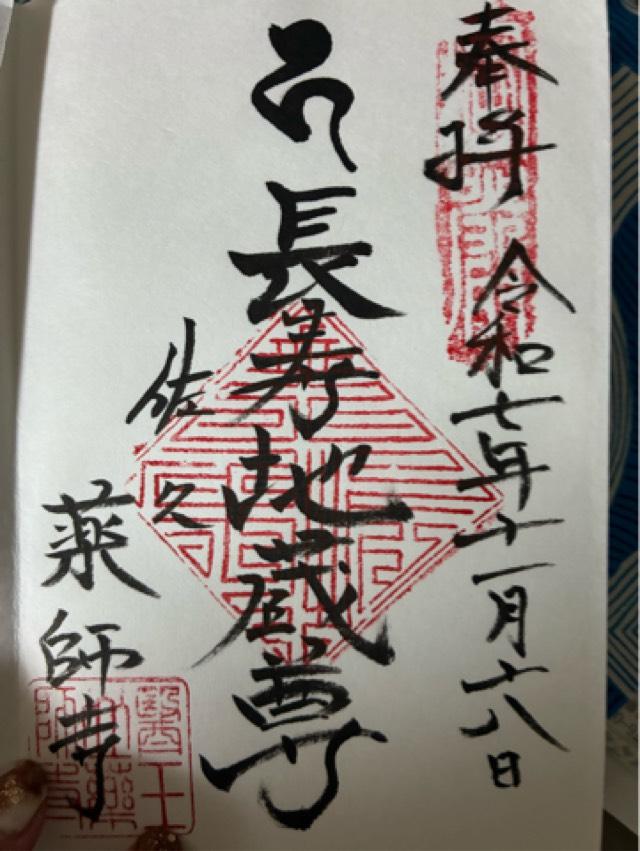 奉拝 令和七年十一月十八日
長寿地蔵尊
佐久
薬師寺
醫王